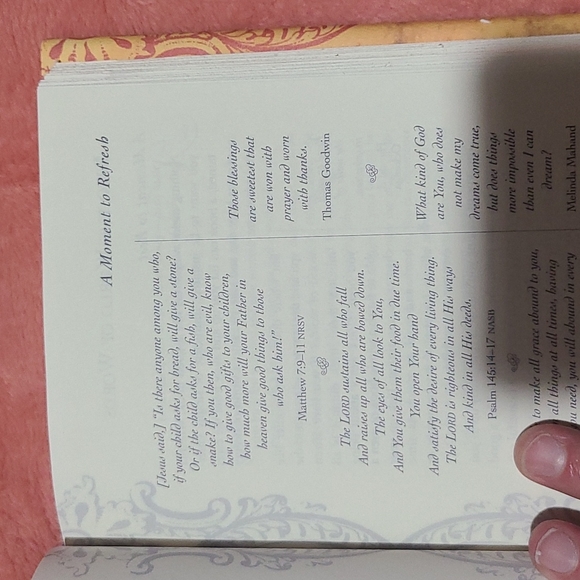 A Moment to Refresh
[Jesus said,] "Is there anyone among you who,
if your child asks for bread, will give a stone?
Or if the child asks for a fish, will give a
snake? If you then, who are evil, know
how to give good gifts to your children,
how much more will your Father in
heaven give good things to those
who ask him!"
Matthew 7:9–11 NRSV
The LORD sustains all who fall
And raises up all who are bowed down.
The eyes of all look to You,
And You give them their food in due time.
You open Your hand
And satisfy the desire of every living thing.
The LORD is righteous in all His ways
And kind in all His deeds.
Psalm 145:14–17 NASB
to make all grace abound to you,
all things at all times, having
you need, you will abound in every
Those blessings
are sweetest that
are won with
prayer and worn
with thanks.
Thomas Goodwin
What kind of God
are You, who does
not make my
dreams come true,
but does things
more impossible
than even I can
dream?
Melinda Mahand